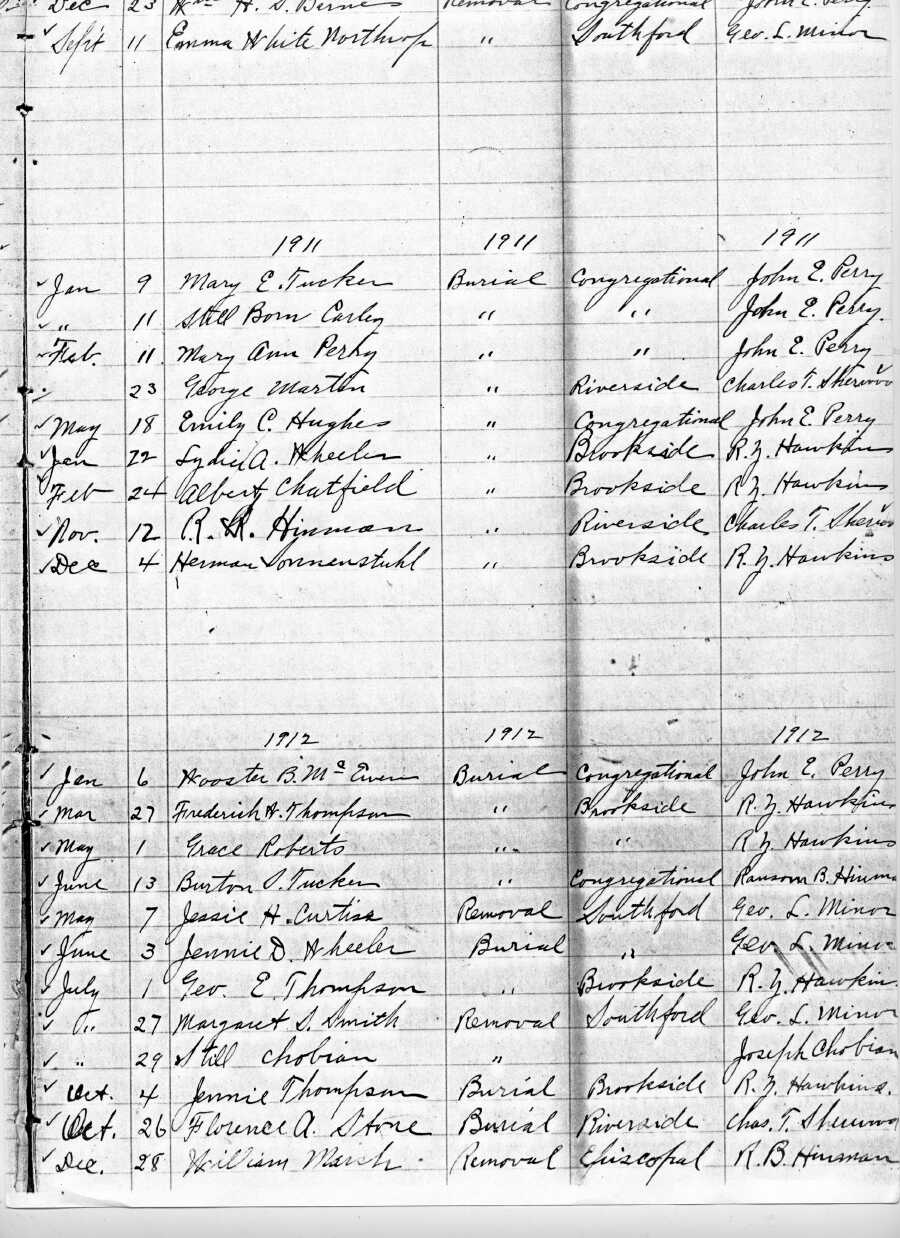 Dec 23 Wm H. S. Removal Congregational John E. Perry
Sept 11 Emma White Northrop " Southford Geo. L. Minor
1911 1911 1911
Jan 9 Mary E. Tucker Burial Congregational John E. Perry
" 11 Still Born Carley " " John E. Perry.
Feb. 11. Mary Ann Perry " " John E. Perry
23 George Martin " Riverside Charles T. Sherwoo
May 18 Emily C. Hughes " Congregational John E. Perry
Jan 22 Lydia A. Wheeler " Brookside R. Y. Hawkins
Feb 24 Albert Chatfield " Brookside R. Y. Hawkins
Nov. 12 R. R. Hinman " Riverside Charles T. Sherwoo
Dec 4 Herman Sonnenstuhl " Brookside R. Y. Hawkins
1912 1912 1912
Jan 6 Wooster B. Mc Ewen Burial Congregational John E. Perry
Mar 27 Frederick H. Thompson " Brookside R. Y. Hawkins
May 1 Grace Roberts " " R Y Hawkins
June 13 Burton S. Tucker " Congregational Ransom B. Hinma
May 7 Jessie H. Curtiss Removal Southford Geo. L. Minor
June 3 Jennie D. Wheeler Burial " Geo L. Minor
July 1 Geo. E. Thompson " Brookside R. Y. Hawkin
" 27 Margaret S. Smith Removal Southford Geo. L. Minor
" 29 Still Chobian " Joseph Chobian
Oct. 4 Jennie Thompson Burial Brookside R. Y. Hawkins.
Oct. 26 Florence A. Stone Burial Riverside Chas. T. Sherwoo
Dec. 28 William Marsh Removal Episcopal R. B. Hinman